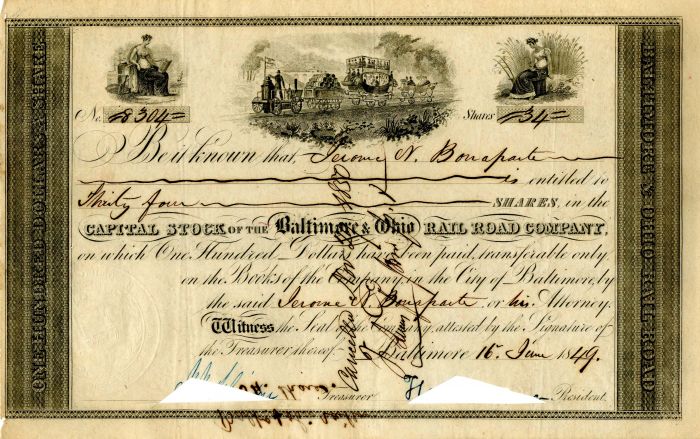 ONE HUNDRED DOLLARS A SHARE.
BALTIMORE & OHIO RAIL ROAD
No. 8304 Shares 34
Be it known that, Jerome N. Bonaparte
is entitled to
Thirty four SHARES, in the
CAPITAL STOCK OF THE Baltimore & Ohio RAIL ROAD COMPANY,
on which One Hundred Dollars has been paid, transferable only
on the Books of the Company, in the City of Baltimore, by
the said Jerome N. Bonaparte or his Attorney.
Witness the Seal of the Company, attested by the Signature of
the Treasurer thereof. Baltimore 16 June 1849.
Treasurer President.
Cancelled